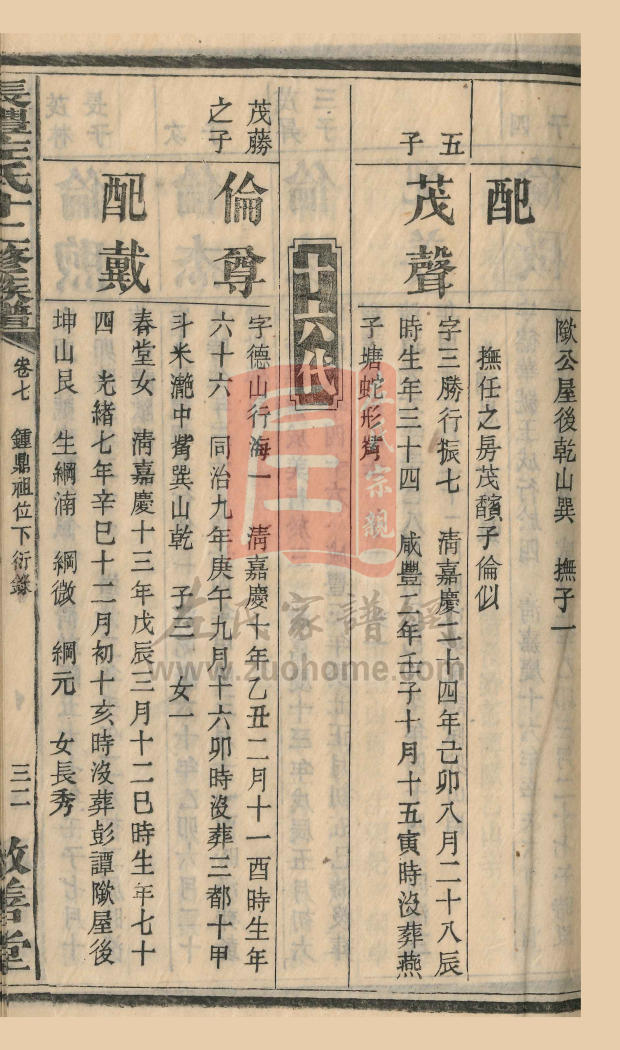 配
歐公屋後乾山巽　撫子一
撫任之房茂馪子倫似
五子
茂聲
字三勝行振七　清嘉慶二十四年己卯八月二十八辰
時生年三十四　咸豐二年壬子十月十五寅時沒葬燕
子塘蛇形觜
十六代
茂勝之子
倫尊
字德山行海一　清嘉慶十年乙丑二月十一酉時生年
六十六　同治九年庚午九月十六卯時沒葬三都十甲
斗米灔中觜巽山乾　子三　女一
配戴
春堂女　清嘉慶十三年戊辰三月十二巳時生年七十
四　光緒七年辛巳十二月初十亥時沒葬彭譚歐屋後
坤山艮　生綱湳　綱微　綱元　女長秀
長澧左氏十二修族譜
卷七　鍾鼎祖位下衍錄
三二
敦善堂
左氏宗親
左氏家譜網
www.zuohome.com